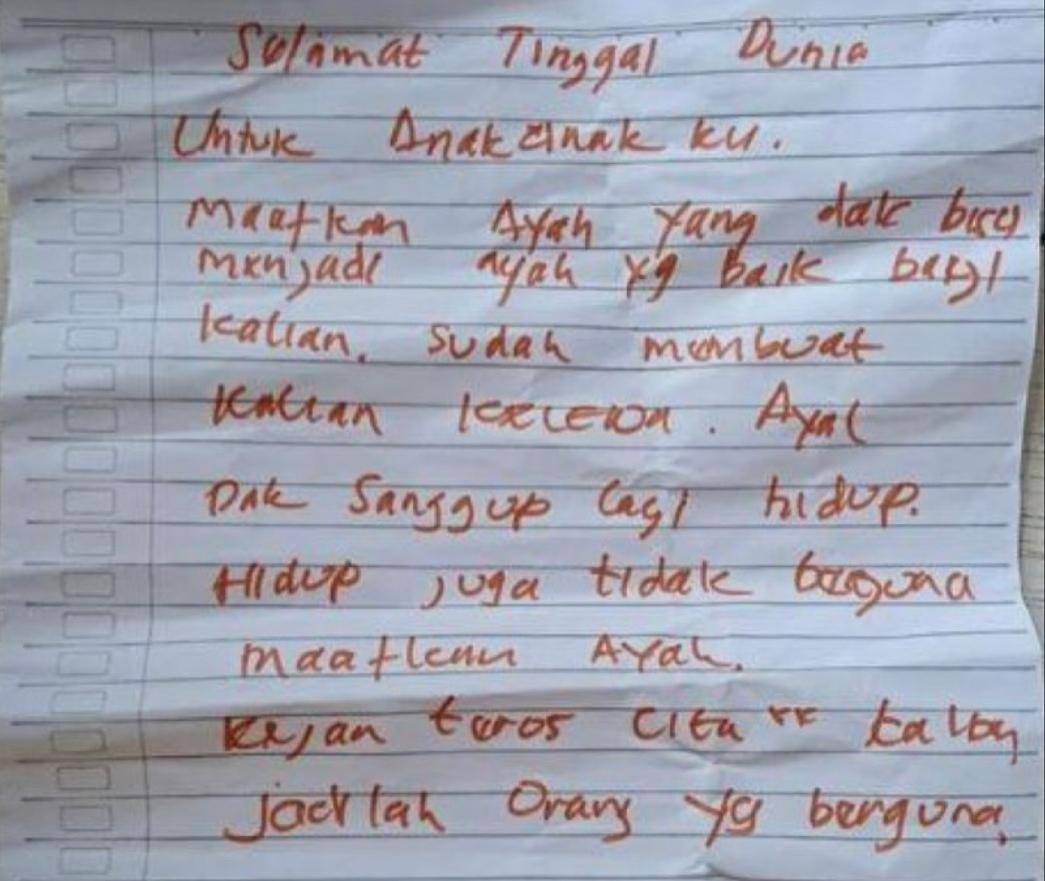 Selamat Tinggal Dunia
Untuk Anak anak ku.
Maafkan Ayah yang dak bisa
menjadi ayah yg baik bagi
kalian. sudah membuat
Kalian kecewa. Ayah
Dak Sanggup lagi hidup.
Hidup juga tidak berguna
maafkan Ayah.
Kejar terus cita" kalian
jadilah Orang yg berguna,